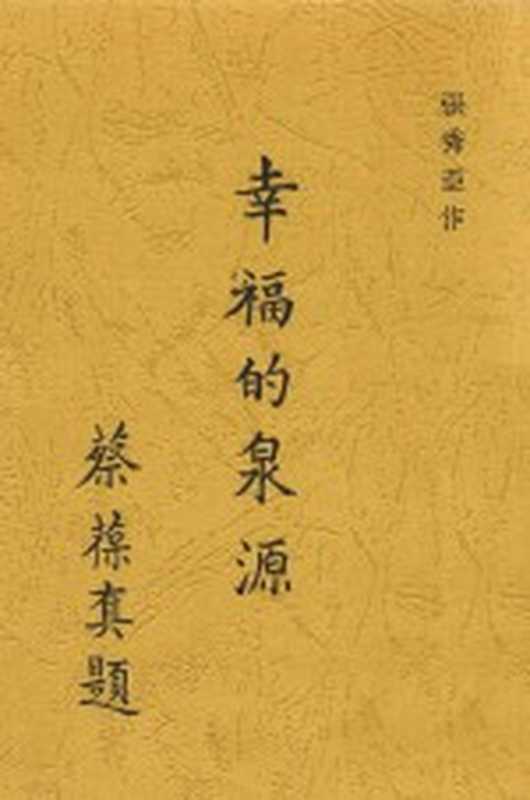 張秀亞作
幸福的泉源
蔡葆真題